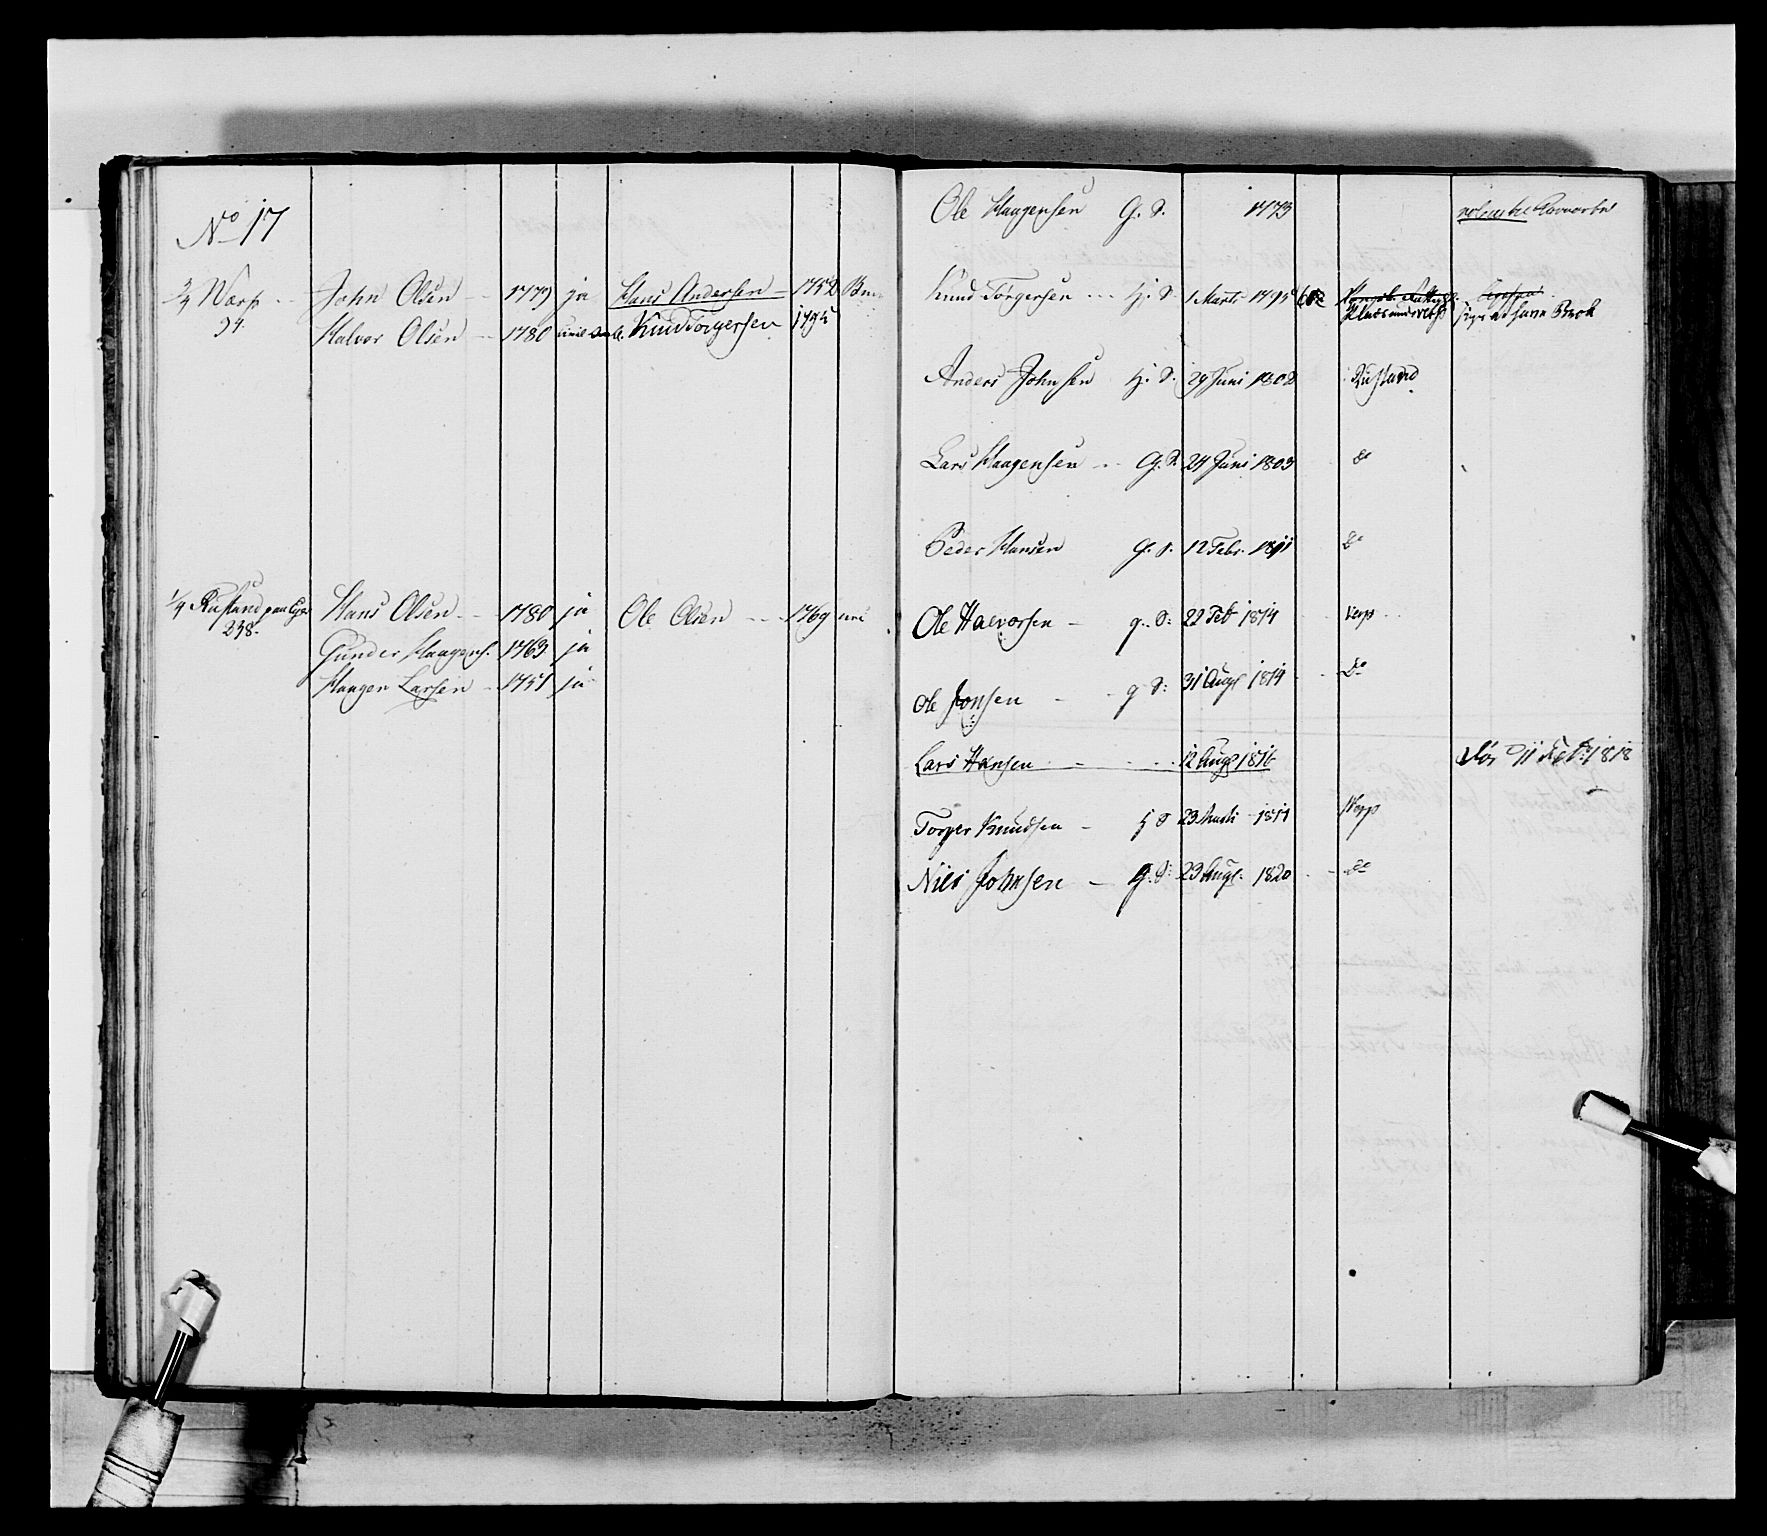 No 17
3/4 Værp John Olsen 1779 ja Hans Andersen 1752
94. Halvor Olsen 1780 Knud Torgersen 1795
1/4 Rustand paa Eger Hans Olsen 1780 ja Ole Olsen 1769
238. Gunder Haagens. 1763 ja
Haagen Larsen 1751 ja
Ole Haagensen G. S. 1773
Knud Törgersen Hj. S. 1 Marts 1795
sige at have Brok
Anders Johnsen Hj. S. 29 Juni 1802 Rustand
Lars Haagensen G. S. 24 Juni 1803 do
Peder Hansen G. S. 12 Febr. 1811 do
Ole Halvorsen g. S: 22 Feb 1814 Verp
Ole Jonsen g S: 31 Aug 1814 Do
Lars Hansen 12 Aug 1816 Død 11 Feb: 1818
Torger Knudsen S 23 Marti Werp
Niels Johnsen g. S: 23 Aug. 1820 do